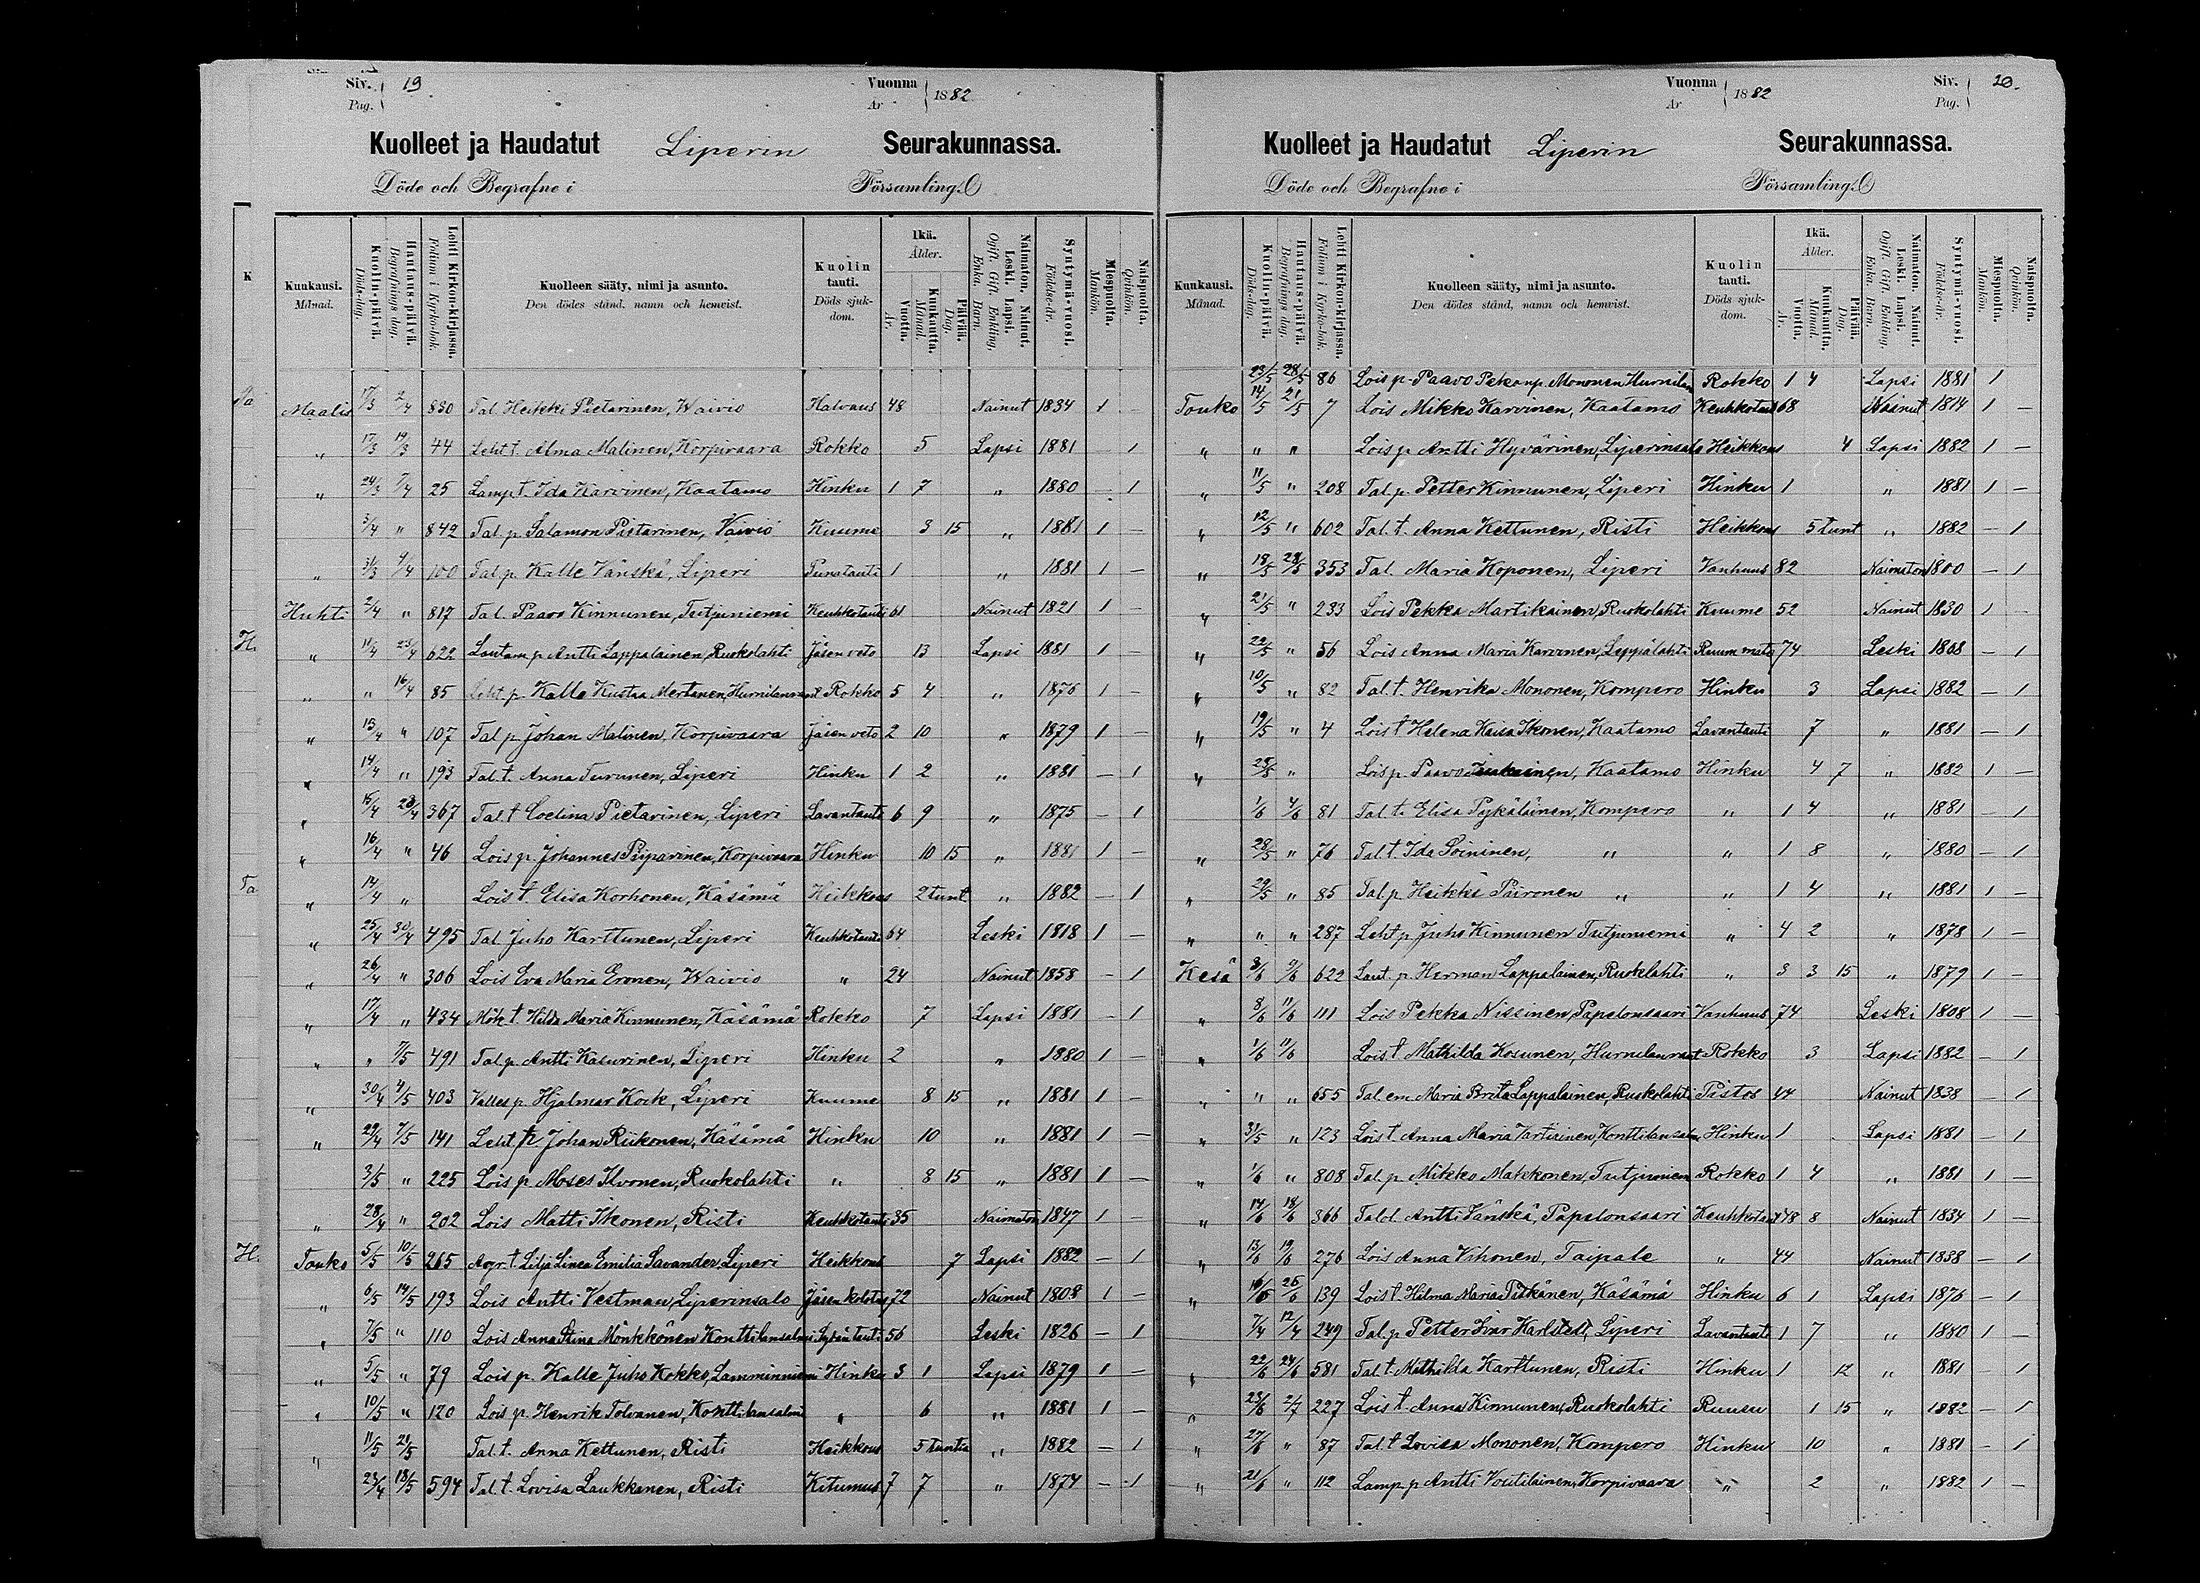 Siv. 19
Pag.
Vuonna 1882
År
Kuolleet ja Haudatut Liperin Seurakunnassa.
Döde och Begrafne i Församling.
K
Kuukausi. Månad.
Kuolin-päivä. Döds-dag.
Hautaus-päivä. Begrafnings dag.
Lehti Kirkon-kirjassa. Folium i Kyrko-bok.
Kuolleen sääty, nimi ja asunto. Den dödes stånd, namn och hemvist.
Kuolin tauti. Döds sjukdom.
Ikä. Ålder.
Vuotta. År.
Kuukautta. Månad.
Päivää. Dag.
Naimaton. Nainut. Leski. Lapsi. Ogift. Gift. Enkling. Enka. Barn.
Syntymä-vuosi. Födelse-år.
Miespuolta. Mankön.
Naispuolta. Qvinkön.
Maalis 17/3 2/4 830 Tal. Heikki Pietarinen, Waivio Halvaus 48 Nainut 1834 1 -
" 17/3 19/3 44 Leht. t. Alma Malinen, Korpivaara Rokko 5 Lapsi 1881 1
" 24/3 7/4 25 Lamp. t. Ida Karvinen, Kaatamo Hinku 1 7 " 1880 - 1
3/4 " 842 Tal. p. Salamon Pietarinen, Vaivio Kuume 3 15 " 1881 1 -
" 31/3 4/4 100 Tal p. Kalle Vänskä, Liperi Punatauti 1 " 1881 1 -
Huhti 2/4 " 817 Tal. Paavo Kinnunen, Tutjuniemi Keuhkotauti 61 Nainut 1821 1 -
" 11/4 23/4 622 Lautam. p. Antti Lappalainen, Ruokolahti Jäsen veto 13 Lapsi 1881 1 -
" " 16/4 85 Leht. p. Kalle Kustaa Mertanen, Rokko 5 4 " 1876 1 -
" 13/4 " 107 Tal p. Johan Malinen, Korpivaara Jäsen veto 2 10 " 1879 1 -
" 14/4 " 193 Tal. t. Anna Turunen, Liperi Hinku 1 2 " 1881 - 1
" 15/4 23/4 367 Tal. t Evelina Pietarinen, Liperi Lavantauti 6 9 " 1875 - 1
" 16/4 " 46 Lois p. Johannes Piiparinen, Korpivaara Hinku 10 15 " 1881 1 -
" 14/4 " Lois t. Elisa Korhonen, Käsämä Heikkous 2 tunt " 1882 - 1
" 25/4 30/4 495 Tal. Juho Karttunen, Liperi Keuhkotauti 64 Leski 1818 1 -
" 26/4 " 306 Lois Eva Maria Eronen, Waivio " 24 Nainut 1858 - 1
" 17/4 " 434 Mök t. Hilda Maria Kinnunen, Käsämä Rokko 7 Lapsi 1881 - 1
" " 7/5 491 Tal p. Antti Kasurinen, Liperi Hinku 2 " 1880 1 -
" 30/4 4/5 403 Valles p. Hjalmar Kock, Liperi Kuume 8 15 " 1881 1 -
" 29/4 7/5 141 Leht. p Johan Riikonen, Käsämä Hinku 10 " 1881 1 -
3/5 " 225 Lois p. Moses Ilvonen, Ruokolahti " 8 15 " 1881 1 -
" 28/4 " 202 Lois Matti Ikonen, Risti Keuhkotauti 35 Naimaton 1847 1 -
Touko 5/5 10/5 265 Agr. t. Lilja Linea Emilia Savander, Liperi Heikkous 7 Lapsi 1882 - 1
" 6/5 14/5 193 Lois Antti Vestman, Liperinsalo Jäsen kolotus 72 Nainut 1808 1 -
" 7/5 " 110 Lois Anna Stina Mönkkönen Konttilansalmi Sydän tauti 56 Leski 1826 - 1
" 5/5 " 79 Lois p. Kalle Juho Kokko, Lamminniemi Hinku 3 1 Lapsi 1879 1 -
" 10/5 " 120 Lois p. Henrik Tolvanen, Konttilansalmi " 6 " 1881 1 -
" 11/5 21/5 Tal. t. Anna Kettunen, Risti Heikkous 5 tuntia " 1882 - 1
23/4 13/5 594 Tal. t. Lovisa Laukkanen, Risti Kitumus 7 7 " 1874 - 1
Vuonna 1882
År
Siv. 20.
Pag.
Kuolleet ja Haudatut Liperin Seurakunnassa.
Döde och Begrafne i Församling.
Kuukausi. Månad.
Kuolin-päivä. Döds-dag.
Hautaus-päivä. Begrafnings dag.
Lehti Kirkon-kirjassa. Folium i Kyrko-bok.
Kuolleen sääty, nimi ja asunto. Den dödes stånd, namn och hemvist.
Kuolin tauti. Döds sjukdom.
Ikä. Ålder.
Vuotta. År.
Kuukautta. Månad.
Päivää. Dag.
Naimaton. Nainut. Leski. Lapsi. Ogift. Gift. Enkling. Enka. Barn.
Syntymä-vuosi. Födelse-år.
Miespuolta. Mankön.
Naispuolta. Qvinkön.
23/5 28/5 86 Lois p. Paavo Pekanp. Mononen Rokko 1 4 Lapsi 1881 1
Touko 14/5 21/5 7 Lois Mikko Karvinen, Kaatamo Keuhkotauti 68 Nainut 1814 1 -
" " " Lois p. Antti Hyvärinen, Liperinsalo Heikkous 4 Lapsi 1882 1 -
" 11/5 " 208 Tal. p. Petter Kinnunen, Liperi Hinku 1 " 1881 1 -
" 12/5 " 602 Tal. t. Anna Kettunen, Risti Heikkous 5 tunt " 1882 - 1
" 19/5 28/5 353 Tal. Maria Koponen, Liperi Vanhuus 82 Naimaton 1800 - 1
" 21/5 " 233 Lois Pekka Martikainen, Ruokolahti Kuume 52 Nainut 1830 1 -
" 22/5 " 56 Lois Anna Maria Karvinen, Leppälahti Ruum mato 74 Leski 1808 - 1
" 10/5 " 82 Tal. t. Henrika Mononen, Kompero Hinku 3 Lapsi 1882 - 1
" 19/5 " 4 Lois t Helena Kaisa Ikonen, Kaatamo Lavantauti 7 " 1881 - 1
" 28/5 " Lois p. Paavo Kaatamo Hinku 4 7 " 1882 1 -
1/6 4/6 81 Tal. t. Elisa Pykäläinen, Kompero " 1 4 " 1881 - 1
" 28/5 " 76 Tal. t. Ida Soininen, " " 1 8 " 1880 - 1
" 29/5 " 85 Tal p Heikki Piironen " " 1 4 " 1881 1 -
" " " 287 Leht p Juho Kinnunen Tutjuniemi " 4 2 " 1878 1 -
Kesä 3/6 9/6 622 Laut. p. Herman Lappalainen, Ruokolahti " 3 3 15 " 1879 1 -
" 8/6 11/6 111 Lois Pekka Nissinen, Papelonsaari Vanhuus 74 Leski 1808 1 -
" 1/6 11/6 Lois t Mathilda Kosunen, Rokko 3 Lapsi 1882 - 1
" " " 655 Tal. em. Maria Brita Lappalainen, Ruokolahti Pistos 44 Nainut 1838 - 1
" 31/5 " 123 Lois t. Anna Maria Vartiainen, Konttilansalmi Hinku 1 Lapsi 1881 - 1
" 1/6 " 808 Tal. p. Mikko Makkonen, Tutjuniemi Rokko 1 4 " 1881 1 -
" 14/6 18/6 366 Talol. Antti Vänskä, Papelonsaari Keuhkotauti 48 8 Nainut 1834 1 -
" 13/6 19/6 276 Lois Anna Vihonen, Taipale " 44 Nainut 1838 - 1
" 16/6 25/6 139 Lois t. Hilma Maria Pitkänen, Käsämä Hinku 6 1 Lapsi 1876 - 1
7/4 12/4 249 Tal. p Petter Ivar Karlstedt, Liperi Lavantauti 1 7 " 1880 1 -
" 22/6 24/6 581 Tal. t. Mathilda Karttunen, Risti Hinku 1 12 " 1881 1
" 23/6 2/7 227 Lois t Anna Kinnunen, Ruokolahti Ruusu 1 15 " 1882 - 1
" 27/6 " 87 Tal. t Lovisa Mononen, Kompero Hinku 10 " 1881 - 1
" 21/6 " 112 Lamp. p Antti Voutilainen, Korpivaara " 2 " 1882 1 -